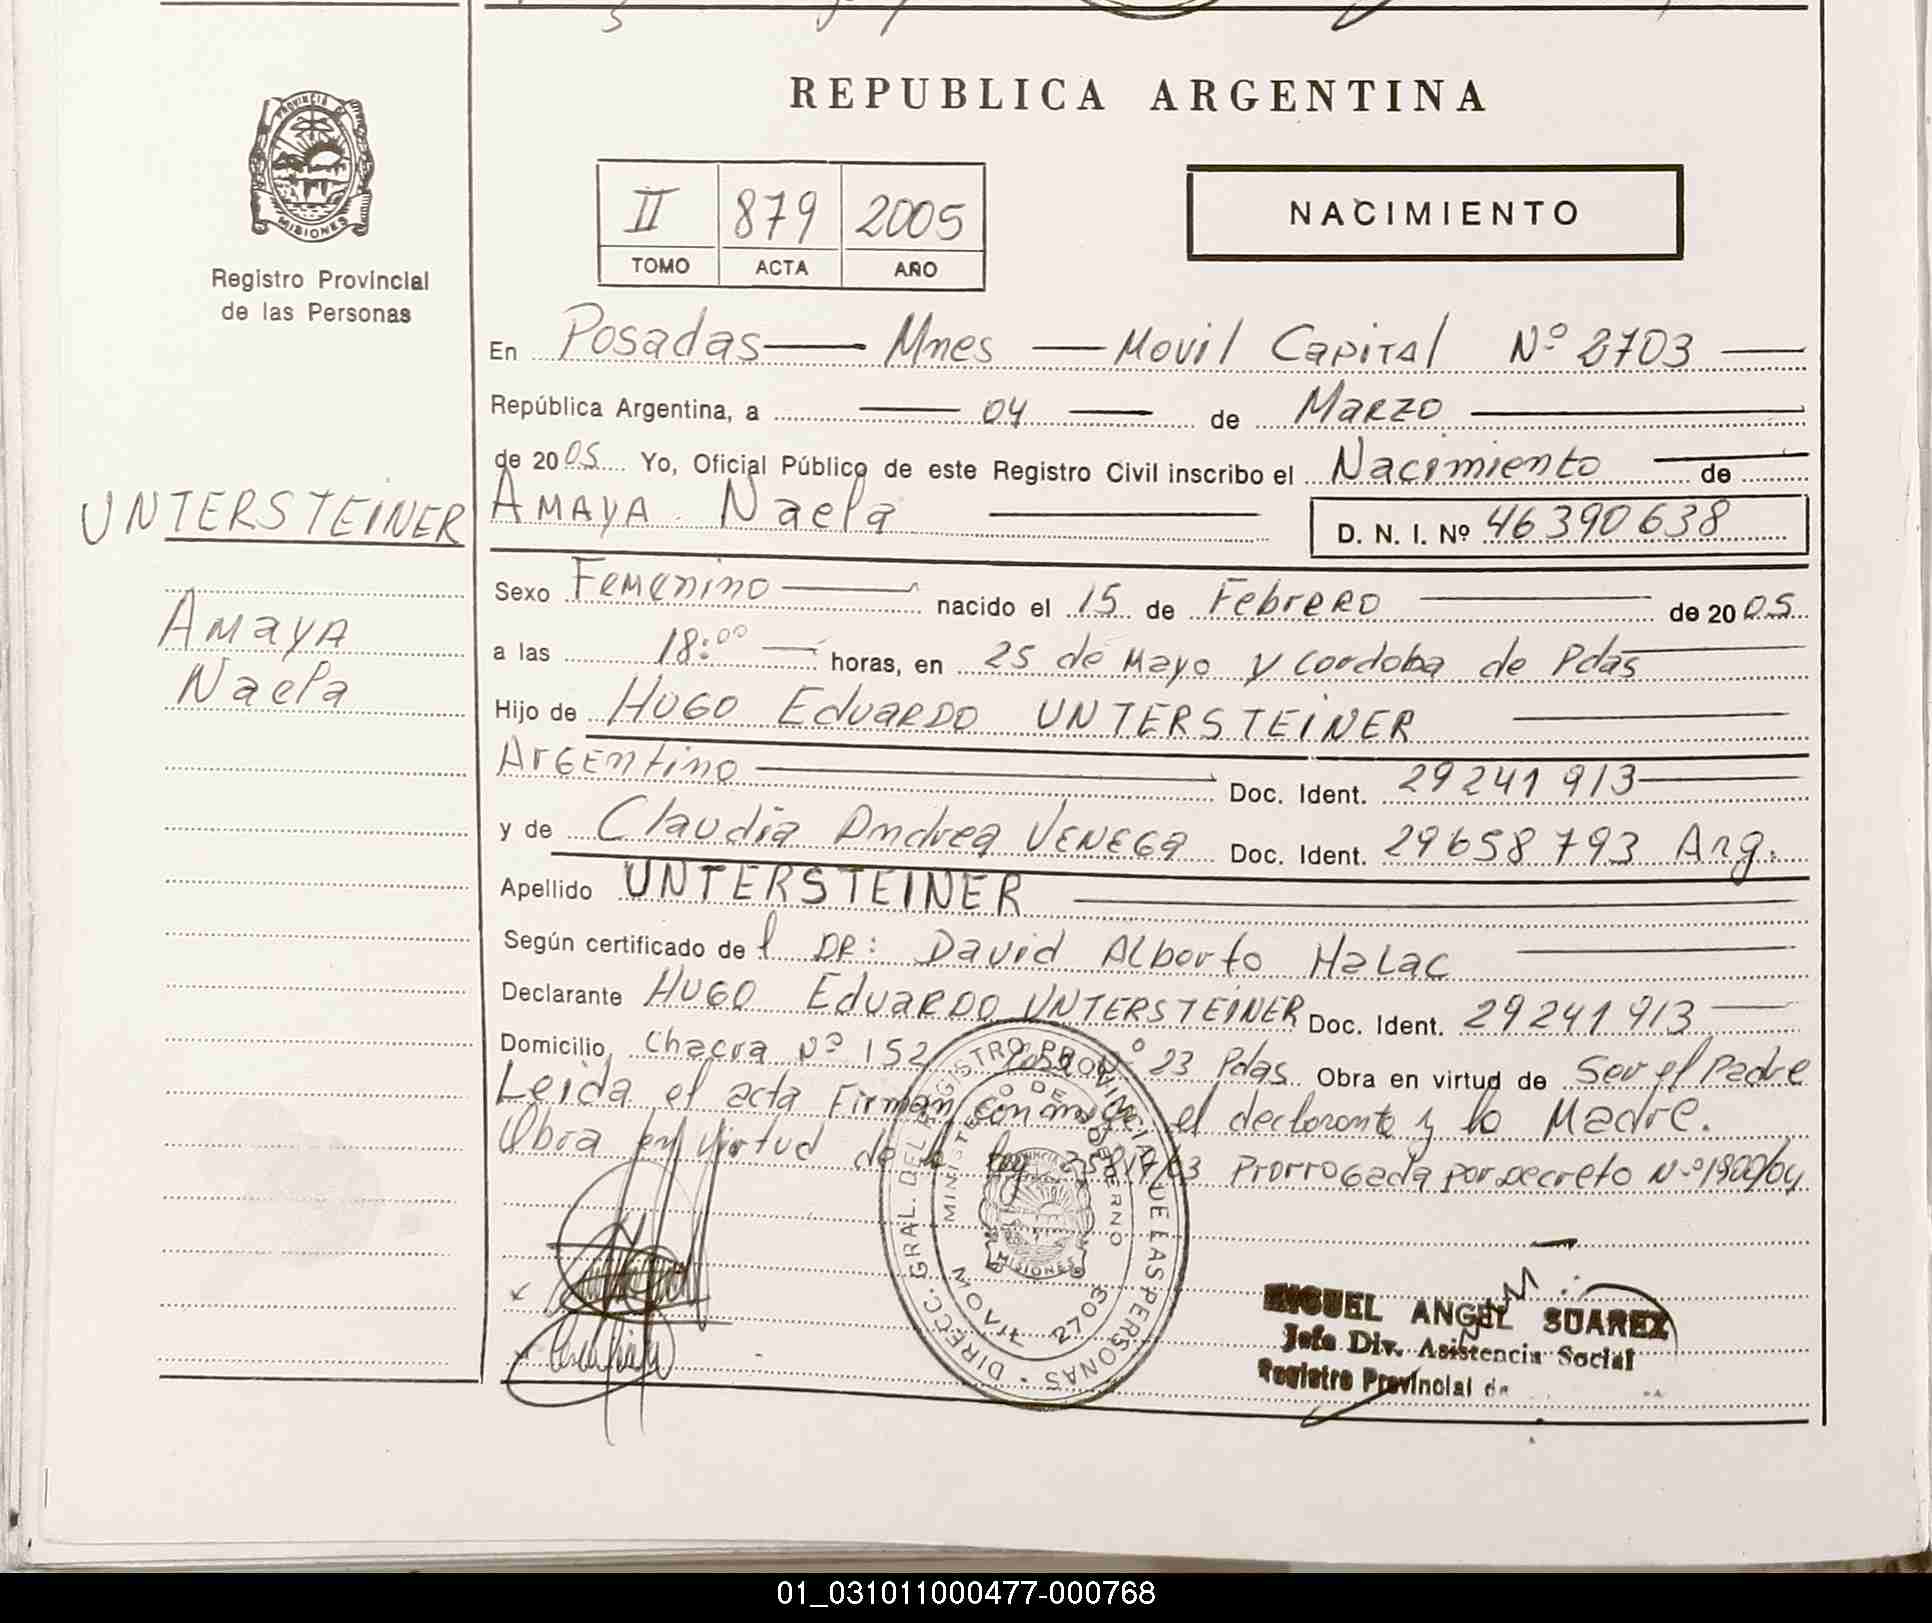 REPUBLICA ARGENTINA
PROVINCIA DE MISIONES
Registro Provincial
de las Personas
II 879 2005
TOMO ACTA AÑO
NACIMIENTO
En Posadas — Mnes — Movil Capital Nº 2703
República Argentina, a 04 de Marzo
de 2005 Yo, Oficial Público de este Registro Civil inscribo el Nacimiento de
UNTERSTEINER
Amaya
Naela
Amaya Naela D. N. I. Nº 46390638
Sexo Femenino nacido el 15 de Febrero de 2005
a las 18:00 horas, en 25 de Mayo y Cordoba de Pdas
Hijo de Hugo Eduardo UNTERSTEINER
Argentino Doc. Ident. 29241913
y de Claudia Andrea VENEGA Doc. Ident. 29658793 Arg.
Apellido UNTERSTEINER
Según certificado del DR: David Alberto Halac
Declarante Hugo Eduardo UNTERSTEINER Doc. Ident. 29241913
Domicilio Chacra Nº 152 Nº 23 Pdas Obra en virtud de Ser el Padre
Leida el acta Firman con migo el declarante y la Madre.
Obra en virtud de la ley 25819/03 Prorrogada por Decreto Nº 1900/04
DIREC. GRAL. DEL REGISTRO PROVINCIAL DE LAS PERSONAS
MINISTERIO DE GOBIERNO
MISIONES
MOVIL 2703
MIGUEL ANGEL SUAREZ
Jefe Div. Asistencia Social
Registro Provincial de
01_031011000477-000768